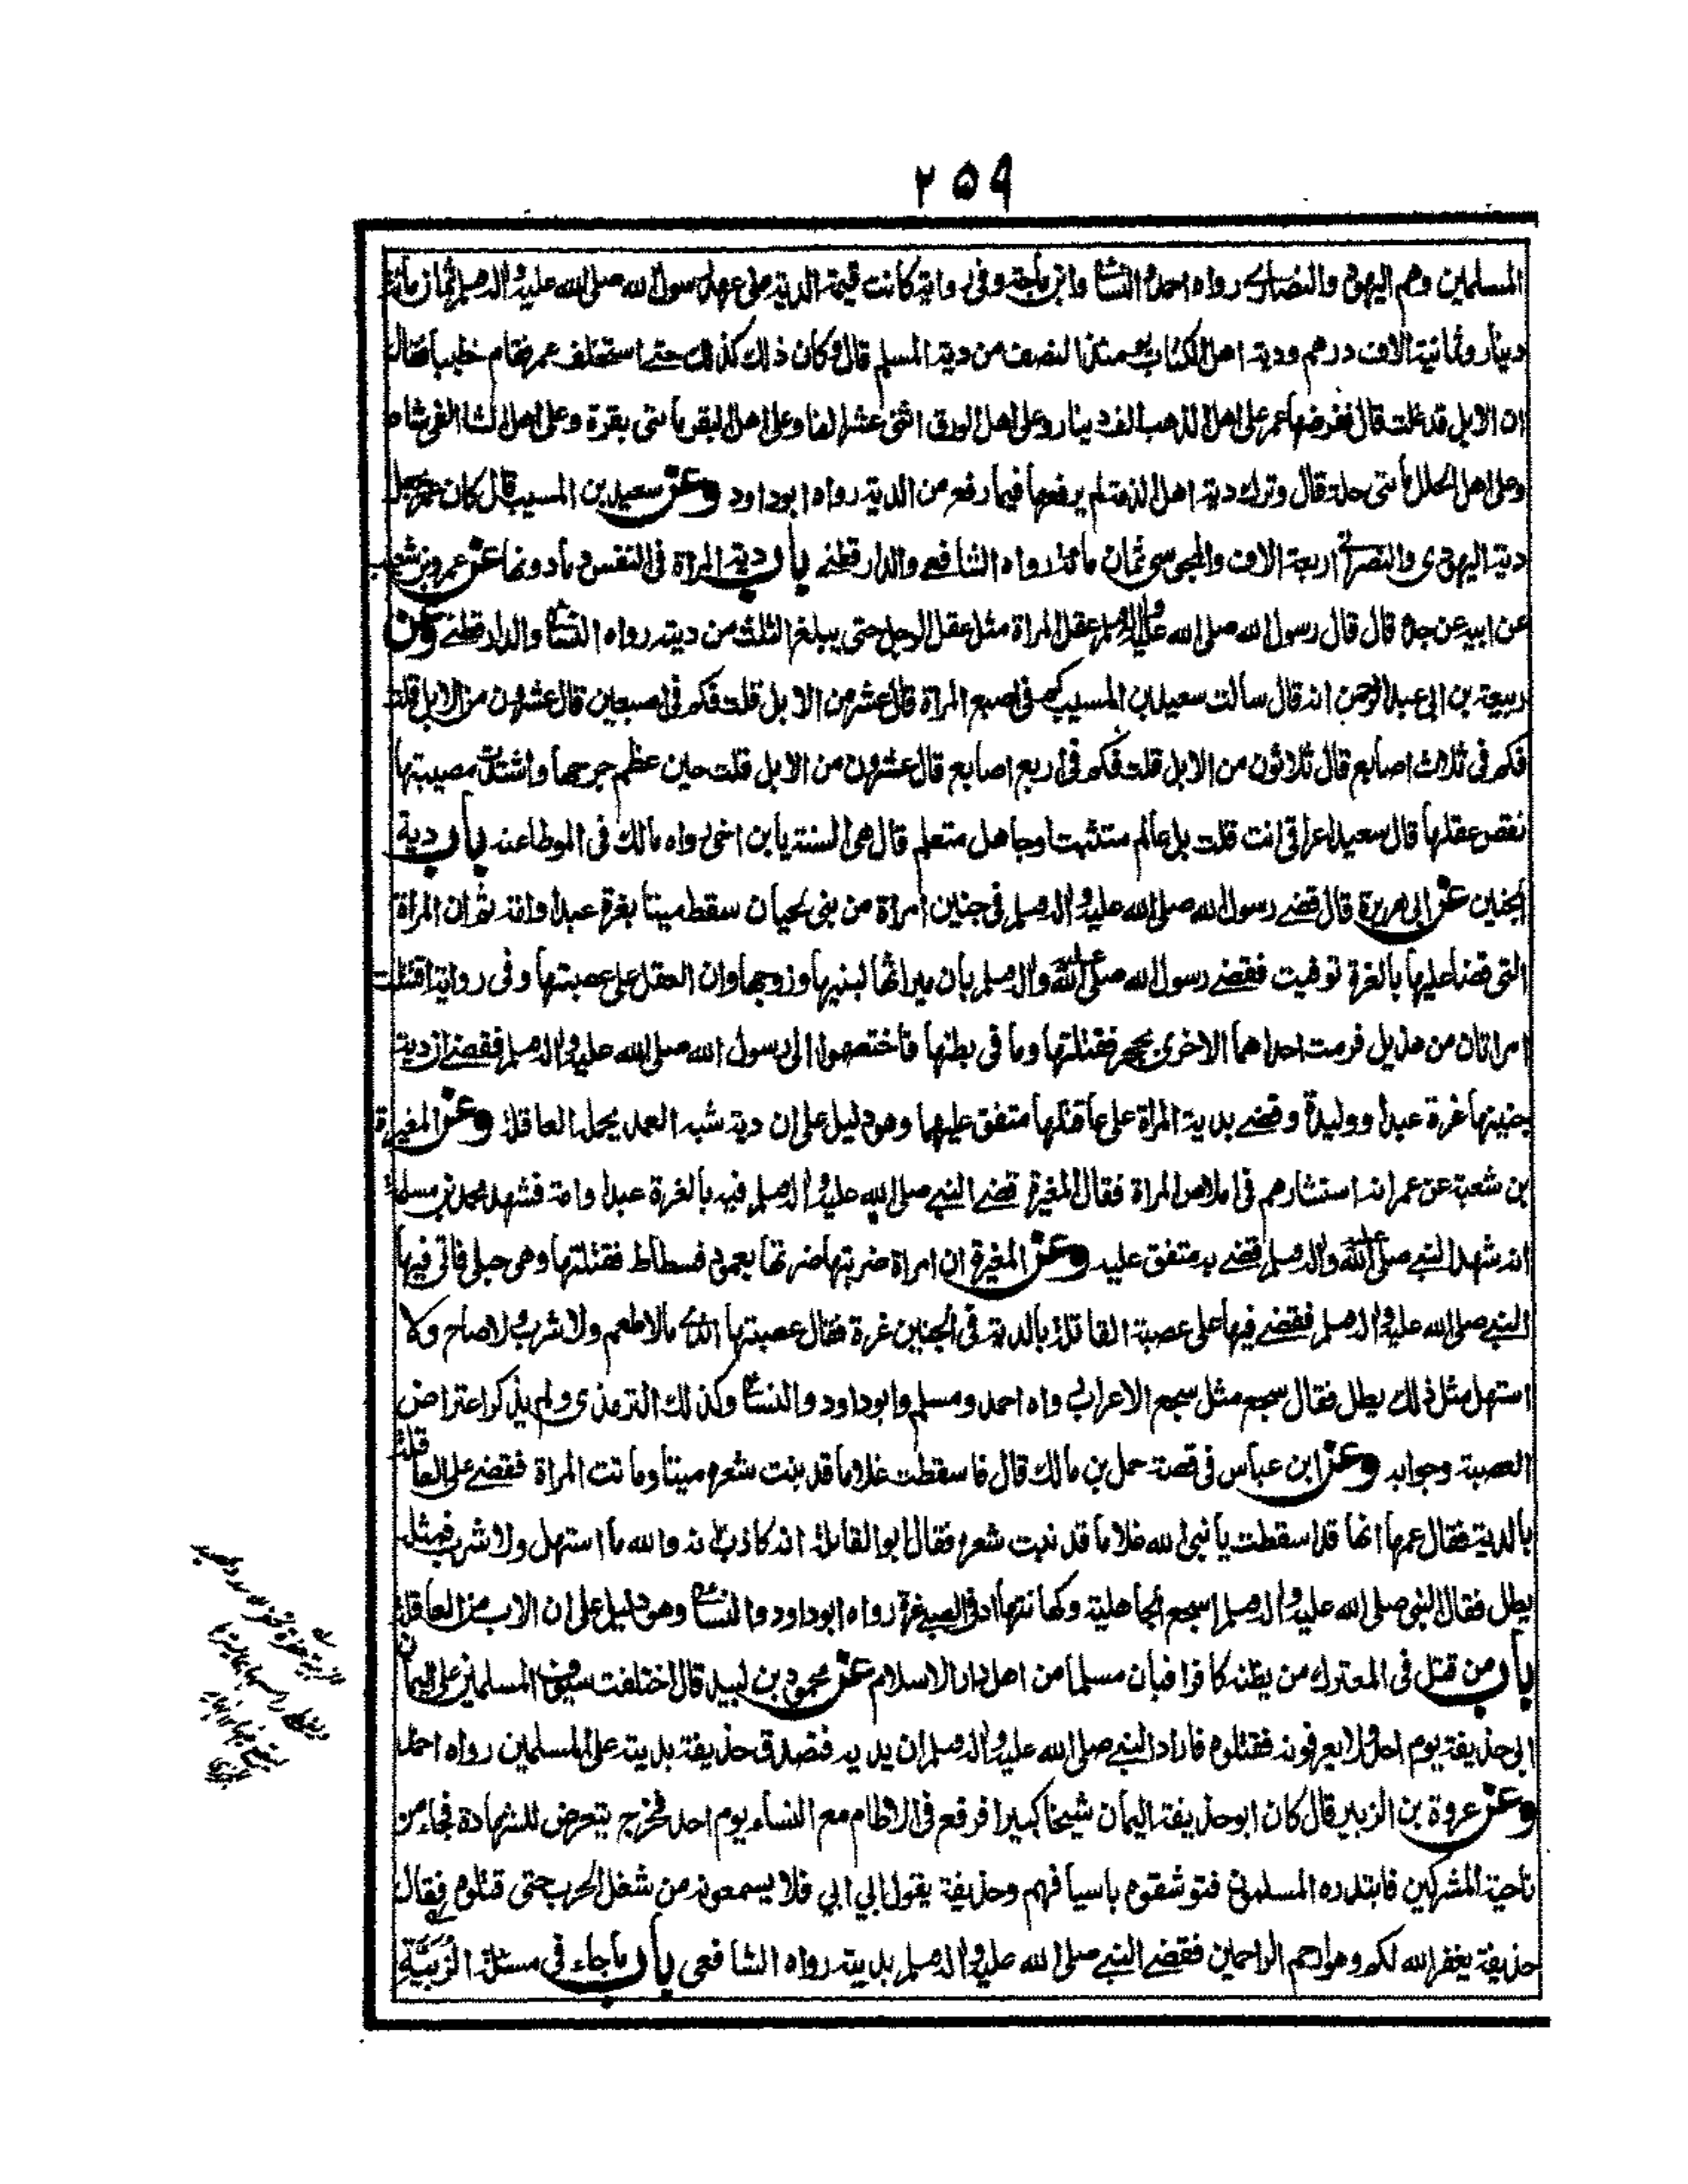 ٢٥٩
المسلمين وهم اليهود والنصارى رواه احمد والنسائى وابن ماجة وفى رواية كانت قيمة الدية على عهد رسول الله صلى الله عليه واله وسلم ثمان مائة
دينار وثمانية الاف درهم ودية اهل الكتاب يومئذ النصف من دية المسلم قال وكان ذلك كذلك حتى استخلف عمر فقام خطيبا فقال
ان الابل قد غلت قال ففرضها عمر على اهل الذهب الف دينار وعلى اهل الورق اثنى عشر الفا وعلى اهل البقر مأتى بقرة وعلى اهل الشا الفى شاه
وعلى اهل الحلل مأتى حلة قال وترك دية اهل الذمة لم يرفعها فيما رفع من الدية رواه ابوداود وعن سعيد بن المسيب قال كان عمر يجعل
دية اليهودى والنصرانى اربعة الاف والمجوسى ثمان مائة رواه الشافعى والدارقطنى باب دية المرأة فى النفس وما دونها عن عمرو بن شعيب
عن ابيه عن جده قال قال رسول الله صلى الله عليه واله وسلم عقل المرأة مثل عقل الرجل حتى يبلغ الثلث من ديته رواه النسائى والدارقطنى وعن
ربيعة بن ابى عبد الرحمن انه قال سالت سعيد بن المسيب كم فى اصبع المرأة قال عشر من الابل قلت فكم فى اصبعين قال عشرون من الابل قلت
فكم فى ثلاث اصابع قال ثلاثون من الابل قلت فكم فى اربع اصابع قال عشرون من الابل قلت حين عظم جرحها واشتدت مصيبتها
نقص عقلها قال سعيد اعراقى انت قلت بل عالم متثبت اوجاهل متعلم قال هى السنة يا بن اخى رواه مالك فى الموطا عنه باب دية
الجنين عن ابى هريرة قال قضى رسول الله صلى الله عليه واله وسلم فى جنين امرأة من بنى لحيان سقط ميتا بغرة عبد او امة ثم ان المرأة
التى قضا عليها بالغرة توفيت فقضى رسول الله صلى الله عليه واله وسلم بان ميراثها لبنيها وزوجها وان العقل على عصبتها وفى رواية اقتتلت
امراتان من هذيل فرمت احداهما الاخرى بحجر فقتلتها وما فى بطنها فاختصموا الى رسول الله صلى الله عليه واله وسلم فقضى ان دية
جنينها غرة عبد او وليدة وقضى بدية المرأة على عاقلتها متفق عليهما وهو دليل على ان دية شبه العمد يحملها العاقلة وعن المغيرة
بن شعبة عن عمر انه استشارهم فى املاص المرأة فقال المغيرة قضى النبى صلى الله عليه واله وسلم فيه بالغرة عبد او امة فشهد محمد بن مسلمة
انه شهد النبى صلى الله عليه واله وسلم قضى به متفق عليه وعن المغيرة ان امرأة ضربتها ضرتها بعمود فسطاط فقتلتها وهى حبلى فاتى فيها
النبى صلى الله عليه واله وسلم فقضى فيها على عصبة القاتلة بالدية فى الجنين غرة فقال عصبتها اندى مالا طعم ولا شرب ولا صاح ولا
استهل مثل ذلك يطل فقال سجع مثل سجع الاعراب رواه احمد ومسلم وابوداود والنسائى وكذلك الترمذى ولم يذكر اعتراض
العصبة وجوابه وعن ابن عباس فى قصة حمل بن مالك قال فاسقطت غلاما قد بنت شعره ميتا وماتت المرأة فقضى على العاقلة
بالدية فقال عمها انها قد اسقطت يا نبى الله غلاما قد نبت شعره فقال ابو القاتلة انه كاذب انه والله ما استهل ولا شرب فمثله
يطل فقال النبى صلى الله عليه واله وسلم اسجع الجاهلية وكهانتها اد فى الصبى غرة رواه ابوداود والنسائى وهو دليل على ان الاب من العاقلة
باب من قتل فى المعترك من يظنه كافرا فبان مسلما من اهل دار الاسلام عن محمود بن لبيد قال اختلفت سيوف المسلمين على اليمان
ابى حذيفة يوم احد ولا يعرفونه فقتلوه فاراد النبى صلى الله عليه واله وسلم ان يديه فتصدق حذيفة بديته على المسلمين رواه احمد
وعن عروة بن الزبير قال كان ابو حذيفة اليمان شيخا كبيرا فرفع فى الاطام مع النساء يوم احد فخرج يتعرض للشهادة فجاء من
ناحية المشركين فابتدره المسلمون فتوشقوه باسيافهم وحذيفة يقول ابي ابي فلا يسمعونه من شغل الحرب حتى قتلوه فقال
حذيفة يغفر الله لكم وهو ارحم الراحمين فقضى النبى صلى الله عليه واله وسلم بديته رواه الشافعى باب ماجاء فى مسئلة الزبية